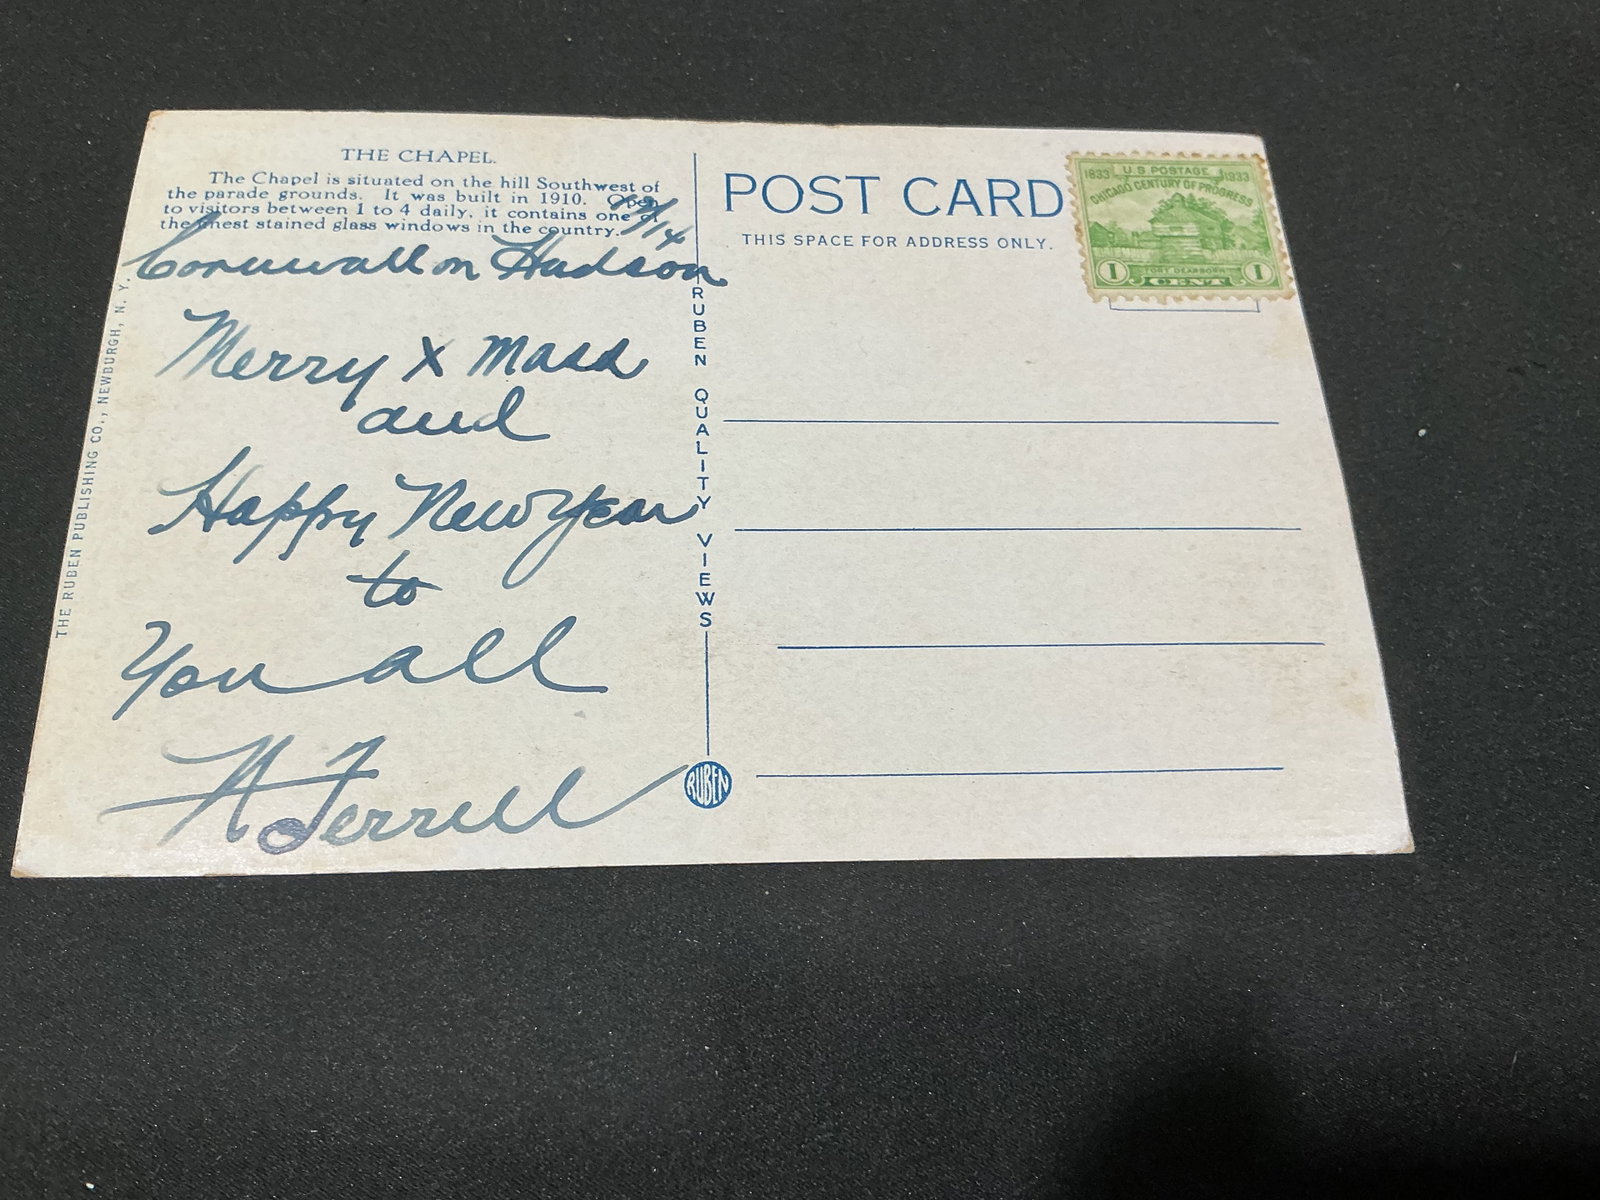 THE CHAPEL.
The Chapel is situated on the hill Southwest of
the parade grounds. It was built in 1910. Open
to visitors between 1 to 4 daily, it contains one of
the finest stained glass windows in the country.
12/14
Cornwall on Hudson
Merry X Mass
and
Happy New Year
to
You all
N Ferrell
THE RUBEN PUBLISHING CO., NEWBURGH, N. Y.
RUBEN QUALITY VIEWS
RUBEN
POST CARD
THIS SPACE FOR ADDRESS ONLY.
1833 U.S. POSTAGE 1933
CHICAGO CENTURY OF PROGRESS
FORT DEARBORN
1 CENT 1